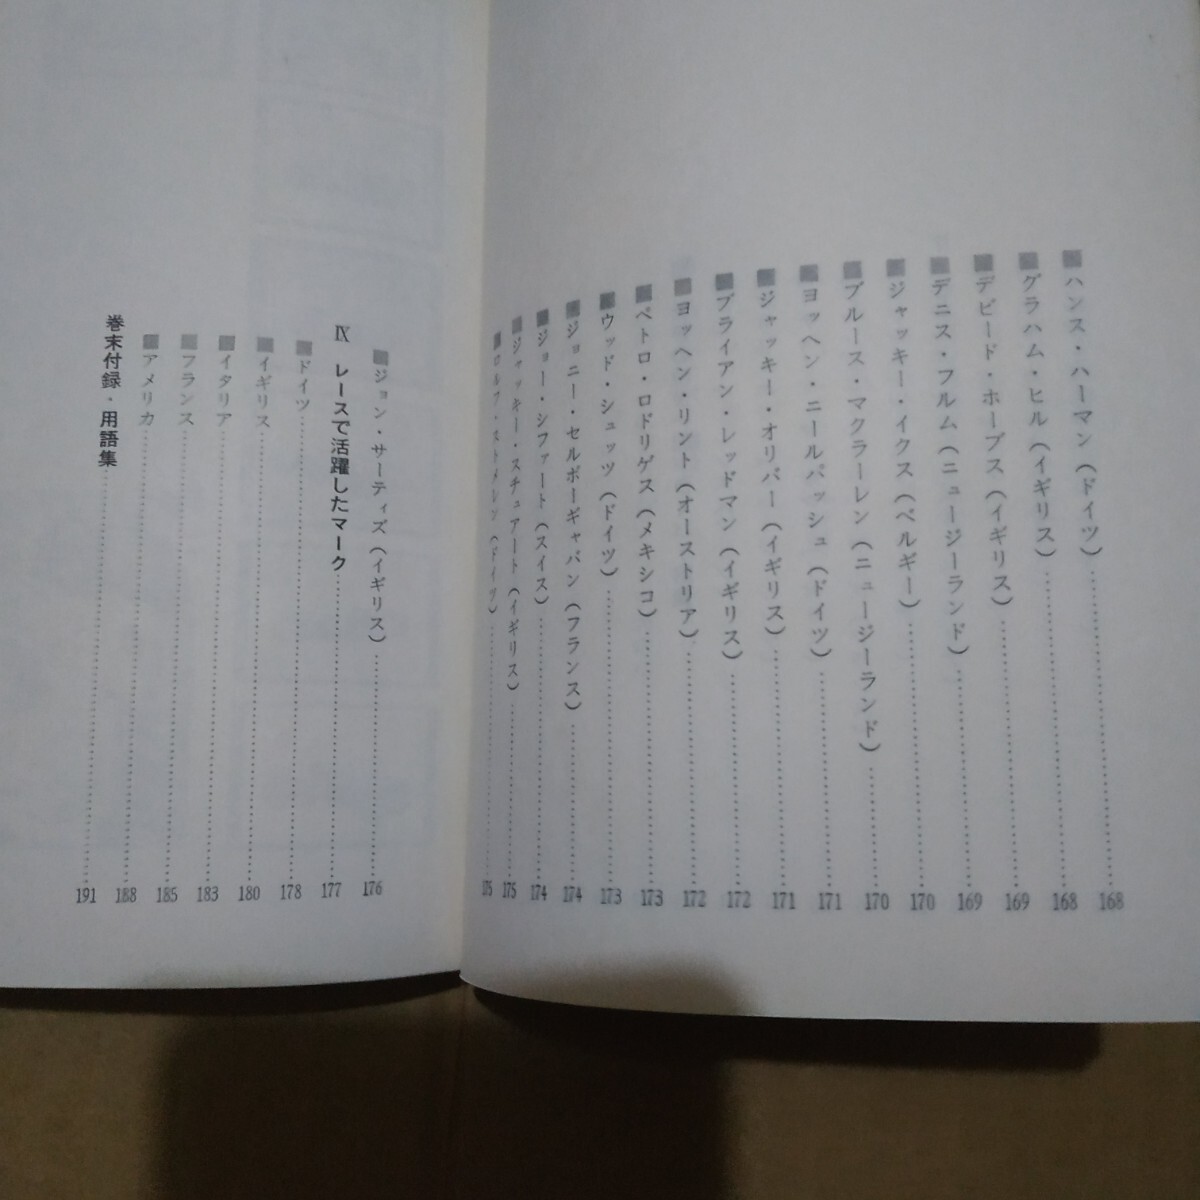 ■ハンス・ハーマン（ドイツ）……168
■グラハム・ヒル（イギリス）……168
■デビード・ホーブス（イギリス）……169
■デニス・フルム（ニュージーランド）……169
■ジャッキー・イクス（ベルギー）……170
■ブルース・マクラーレン（ニュージーランド）……170
■ヨッヘン・ニールパッシュ（ドイツ）……171
■ジャッキー・オリバー（イギリス）……171
■ブライアン・レッドマン（イギリス）……172
■ヨッヘン・リント（オーストリア）……172
■ペトロ・ロドリゲス（メキシコ）……173
■ウッド・シュッツ（ドイツ）……173
■ジョニー・セルボーギャバン（フランス）……174
■ジョー・シファート（スイス）……174
■ジャッキー・スチュアート（イギリス）……175
■ロルフ・ストメレン（ドイツ）……175
■ジョン・サーティズ（イギリス）……176
Ⅸ レースで活躍したマーク……177
■ドイツ……178
■イギリス……180
■イタリア……183
■フランス……185
■アメリカ……188
巻末付録・用語集……191